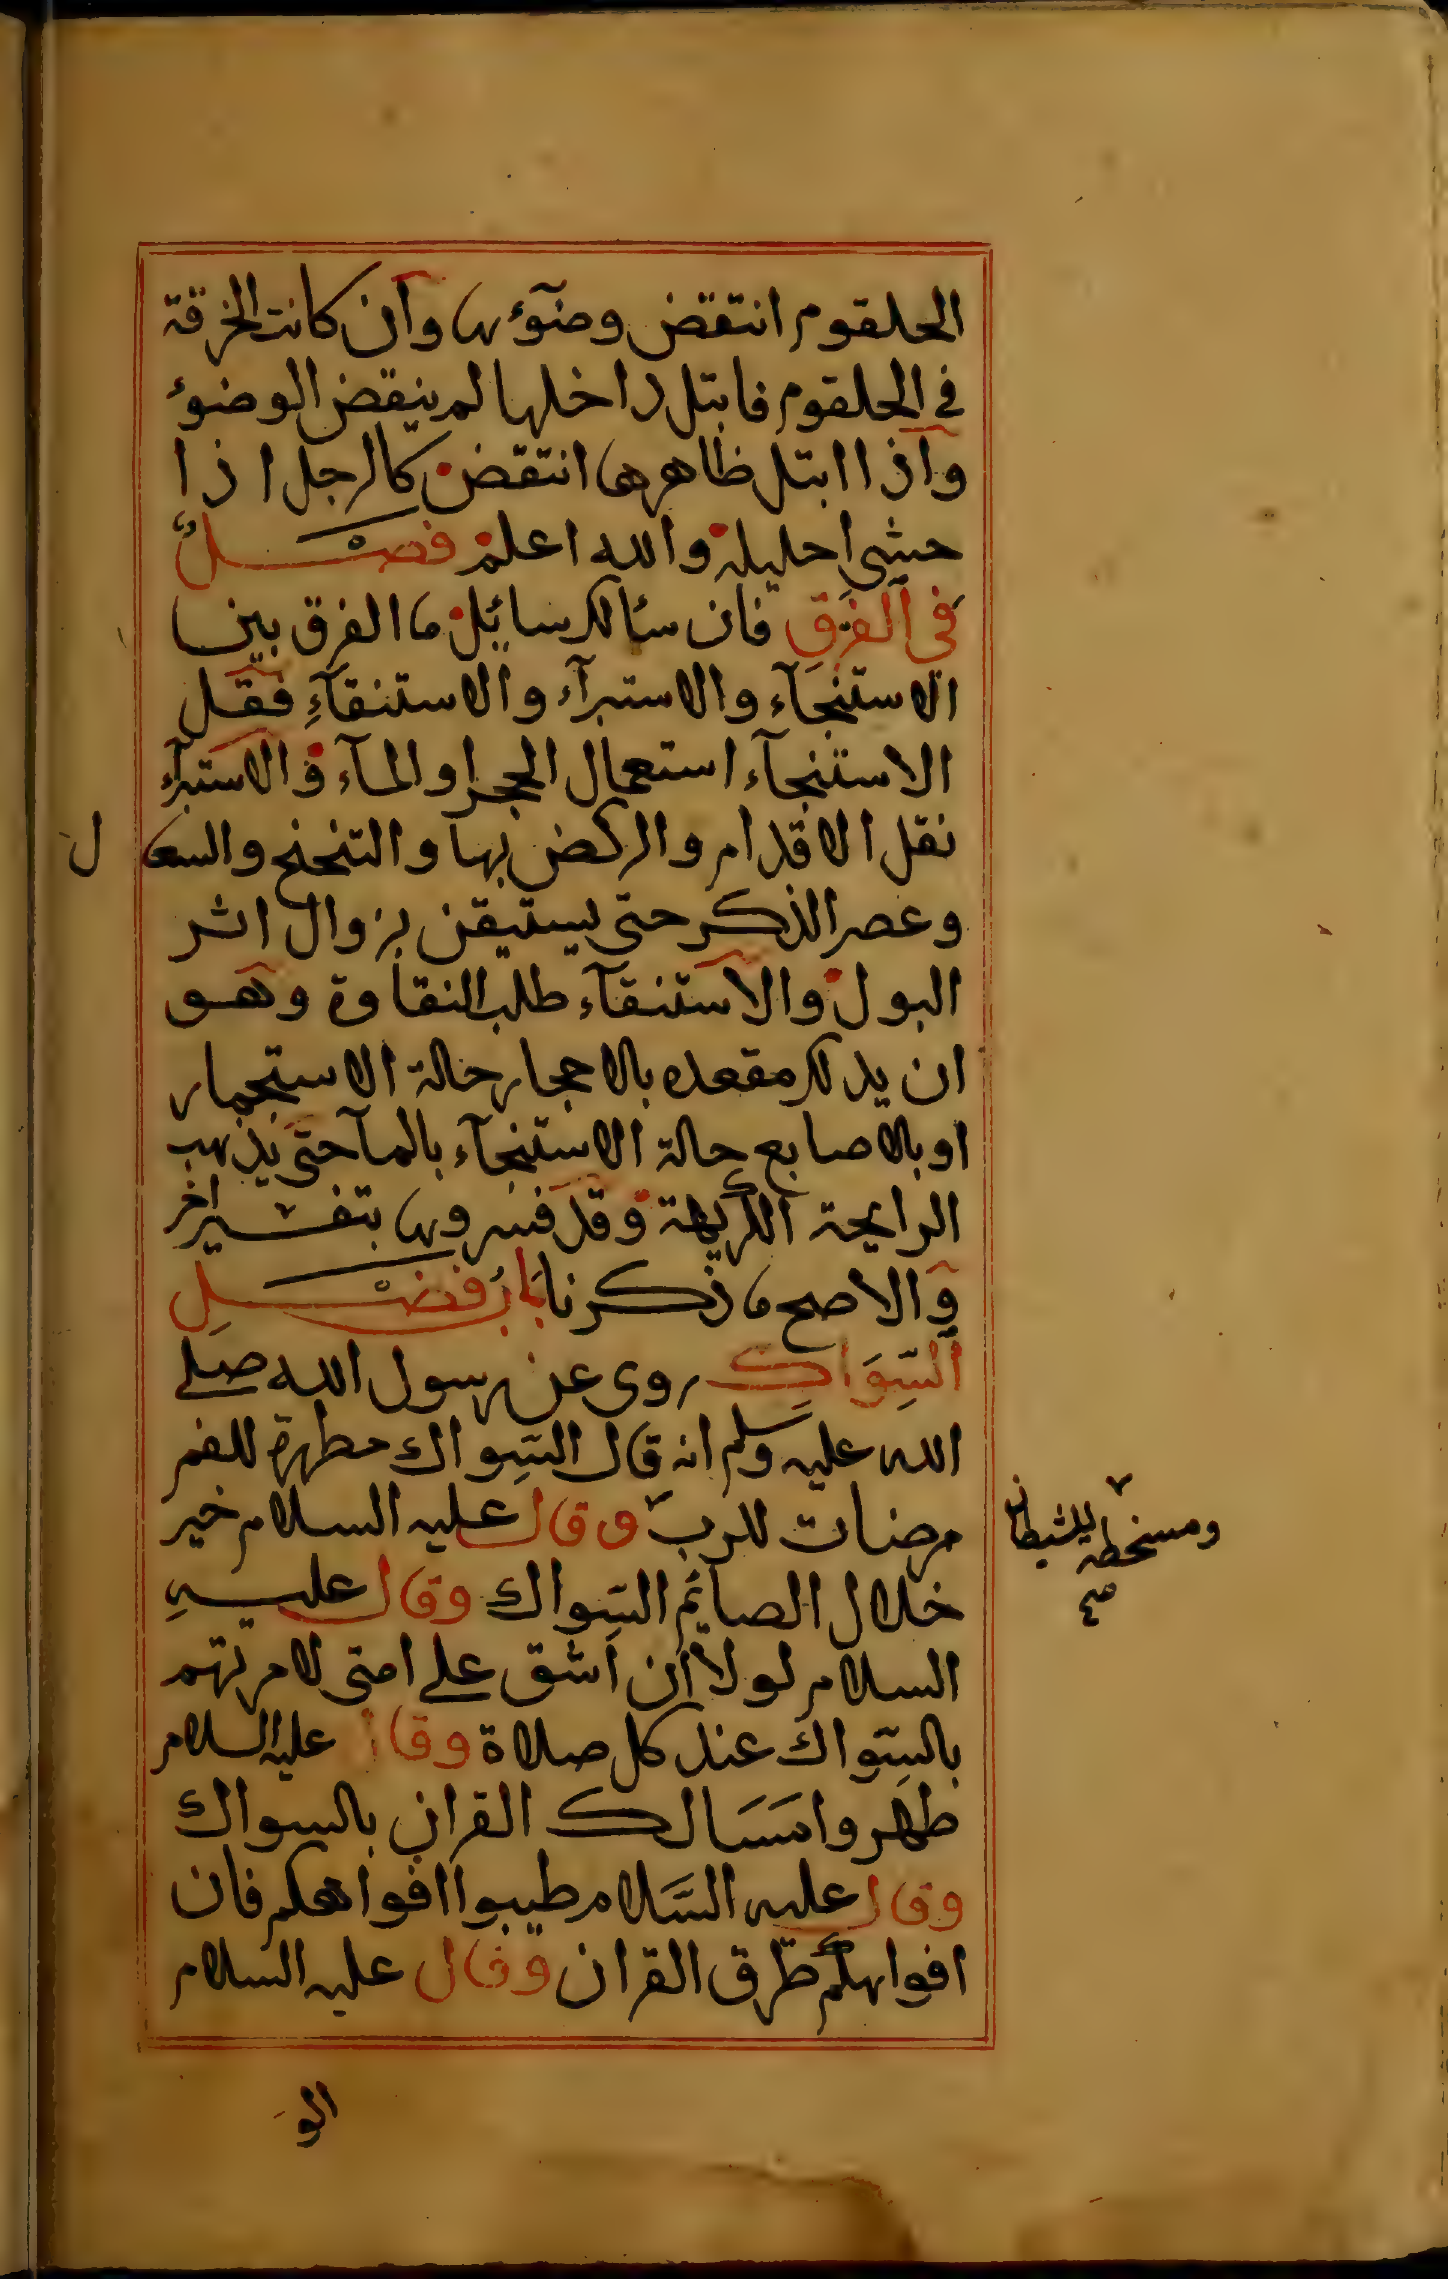 الحلقوم انتقض وضوٓءها وان كانت الخرقة
في الحلقوم فابتل داخلها لم ينقض الوضوء
واذا ابتل ظاهرها انتقض كالرجل اذا
حشى احليله والله اعلم فصل
في الفرق فان سئالك سايل ما الفرق بين
الاستنجآء والاستبرآء والاستنقآءِ فقل
الاستنجآء استعمال الحجر او المآء والاستبرآء
نقل الاقدام والركض بها والتنحنح والسعال
وعصر الذكر حتى يستيقن بزوال اثر
البول والاستنقآء طلب النقاوة وهو
ان يدلك مقعده بالاحجار حالة الاستجمار
او بالاصابع حالة الاستنجآء بالمآ حتى يذهب
الرايحة الكريهة وقد فسروها بتفسير اخر
والاصح ما ذكرنا باب فضل
السِّوَاكِ روى عن رسول الله صلى
الله عليه وسلم انه قال السِّواك مطهرة للفم
مرضات للربّ وقال عليه السلام خير
ومسخطة للشيطان
صح
خلال الصايم السِّواك وقال عليهِ
السلام لولا ان اشق على امتى لامرتهم
بالسِّواك عند كل صلاة وقال عليه السلام
طهروا مَسَالك القران بالسواك
وقال عليه السَّلام طيبوا افواهكم فان
افواهكم طرق القران وقال عليه السلام
الو